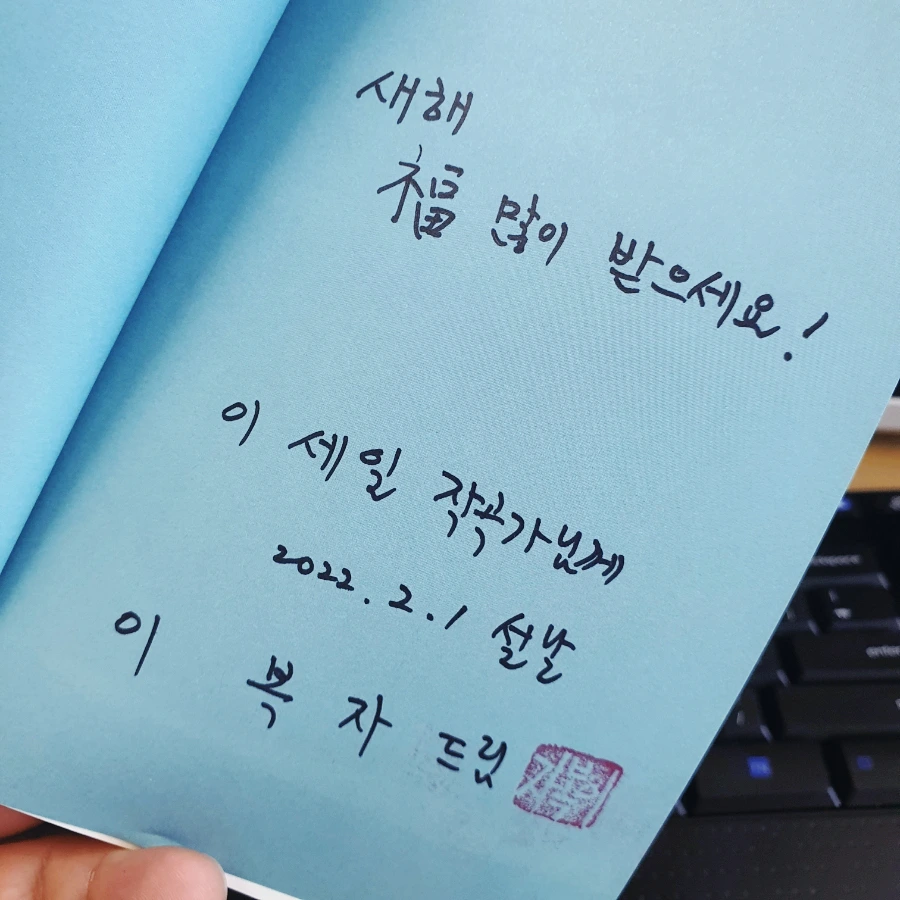 새해
福 많이 받으세요!
이 세일 작곡가님께
2022. 2. 1 설날
이 복자 드림
enter